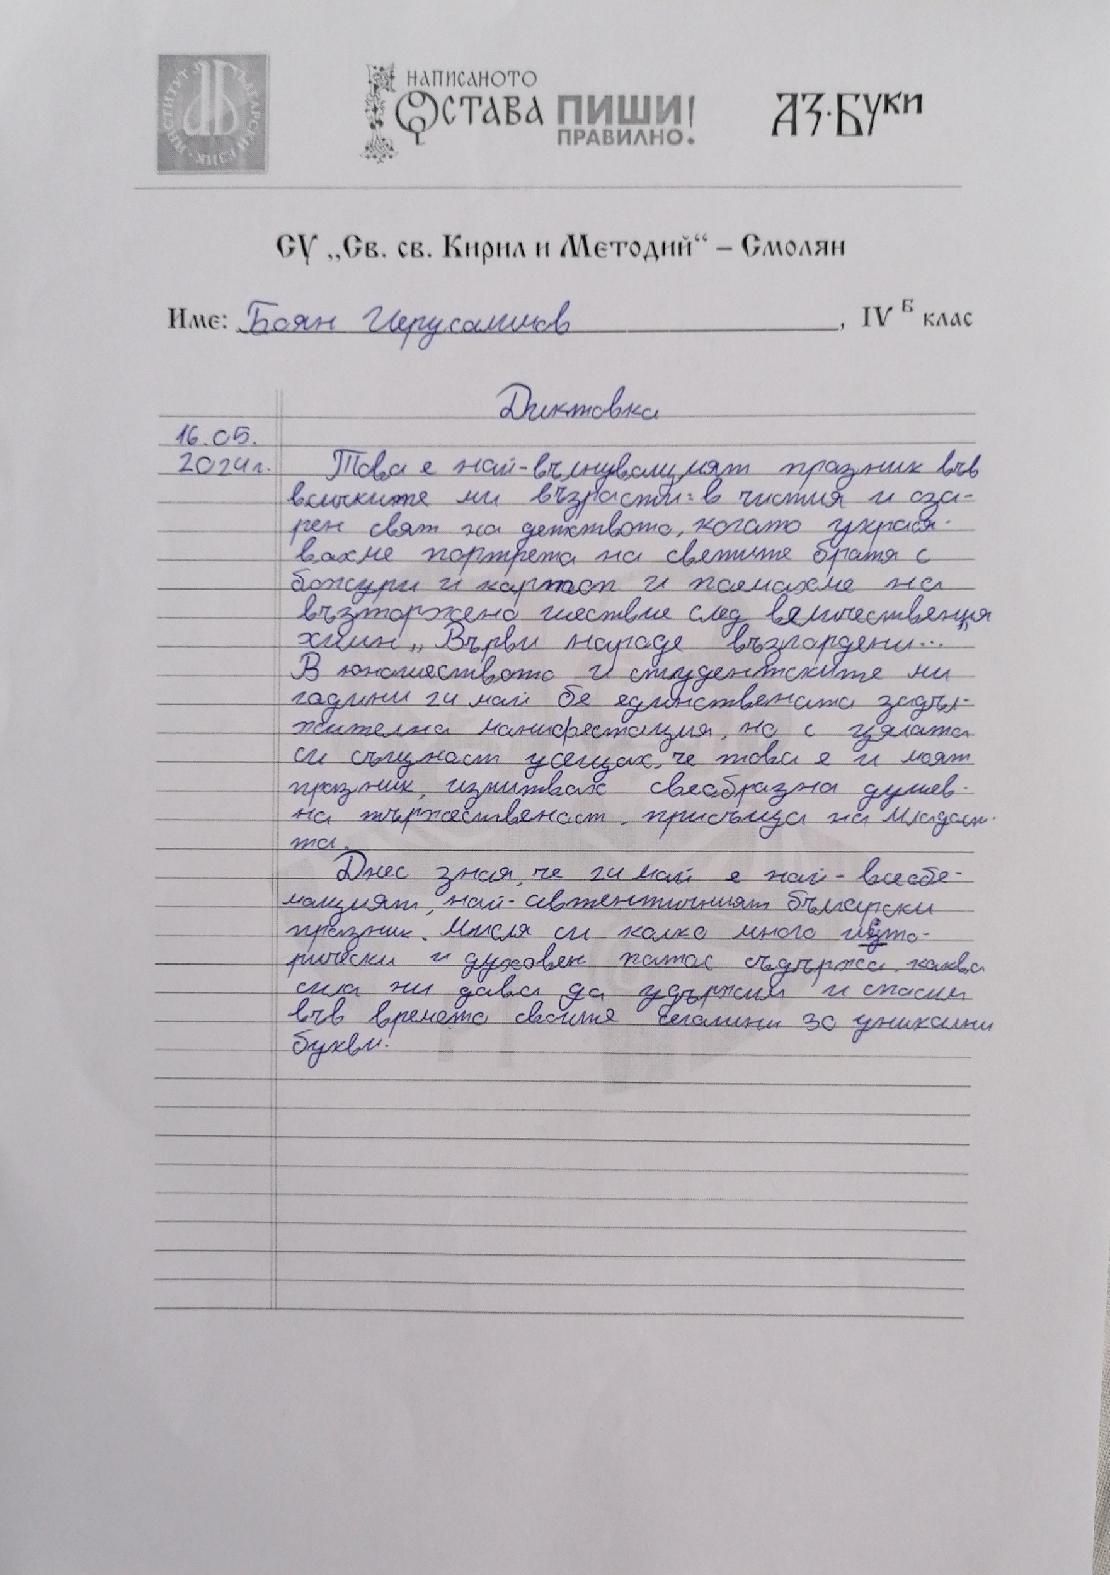 ИНСТИТУТ ЗА БЪЛГАРСКИ ЕЗИК
НАПИСАНОТО
ОСТАВА ПИШИ
ПРАВИЛНО!
АЗ·БУКИ
СУ „Св. св. Кирил и Методий“ – Смолян
Име: Боян Иерусалимов, IV Б клас
Диктовка
16.05.
2024г. Това е най-вълнуващият празник във
всичките ми възрасти: в чистия и оза-
рен свят на детството, когато украся-
вахме портрета на светите братя с
божури и картон и поемахме на
възторжено шествие след величествения
химн „Върви народе възпордени..."
В юношеството и студентските ми
години 24 май бе единствената задъл-
жителна манифестация, но с цялата
си същност усещах, че това е и моят
празник, изпитвах своеобразна душев-
на тържественост, присъща на младост-
та.
Днес зная, че 24 май е най-всеобе-
мащият, най-автентичният български
празник. Мисля си колко много исто-
рически и духовен патос съдържа, каква
сила ни дава да удържим и спасим
във времето своите уникални
букви.